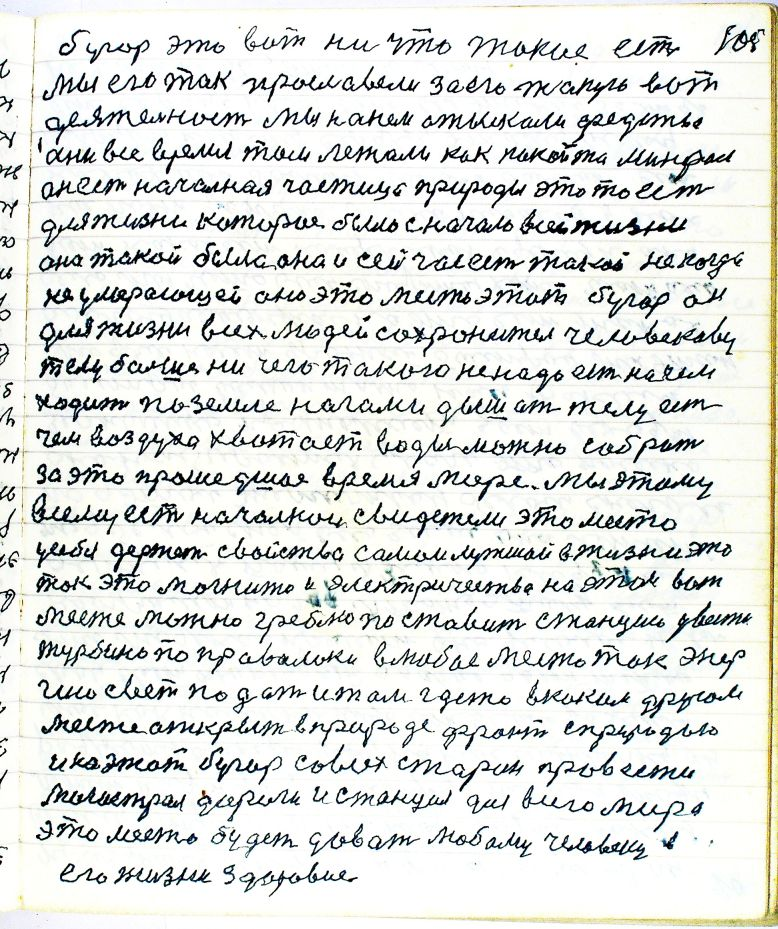 бугор это вот ни что такое есть 108
мы его так прославели заего такую вот
деятелност мы нанем отыскали средства
они все время там лежали как покойта
он ест началная частица природы это то ест
для жизни которое было сначало всей жизни
она такой была она и сейчас ест такой некогда
не умерающей оно это место этот бугор он
для жизни всех людей сохронител человекаву
телу больше ни чего такого ненадо ест на чем
ходит поземле ногами дышат телу ест
чем воздуха хватает воды можно собрат
за это прошедшое время море. мы этому
всему ест началнои свидетели это место
усебя держит свойства самои лутшой в жизни это
ток это могнито и электричества на этом вот
месте можно греблю поставит станцию
турбино по проволоки в любое место ток энер
гию свет подат и там где то в каком другом
месте открыт в природе фронт с природою
и на этот бугор совсех старон провести
дороги и станция для всего мира
это место будет дават любому человеку в
его жизни здоровие